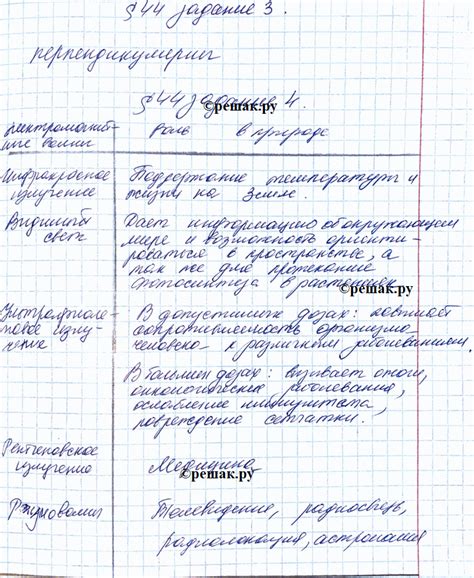 §44 задание 3.
перпендикулярны
§44 задание 4.
©решак.ру
Электромагнит-
ные волны
роль в природе
Инфракрасное
излучение
Поддержание температуры и
жизни на Земле.
Видимый
свет
Дает информацию об окружающем
мире и возможность ориенти-
роваться в пространстве, а
так же для протекание
фотосинтеза в растениях
©решак.ру
Ультрафиоле-
товое излу-
чение
В допустимых дозах: повышает
сопротивляемость организма
человека к различным заболеваниям.
В больших дозах: вызывает ожоги,
онкологические заболевания,
ослабление иммунитета,
повреждение сетчатки.
Рентгеновское
излучение
Медицина
©решак.ру
Радиоволны
Телевидение, радиосвязь,
радиолокация, астрономия